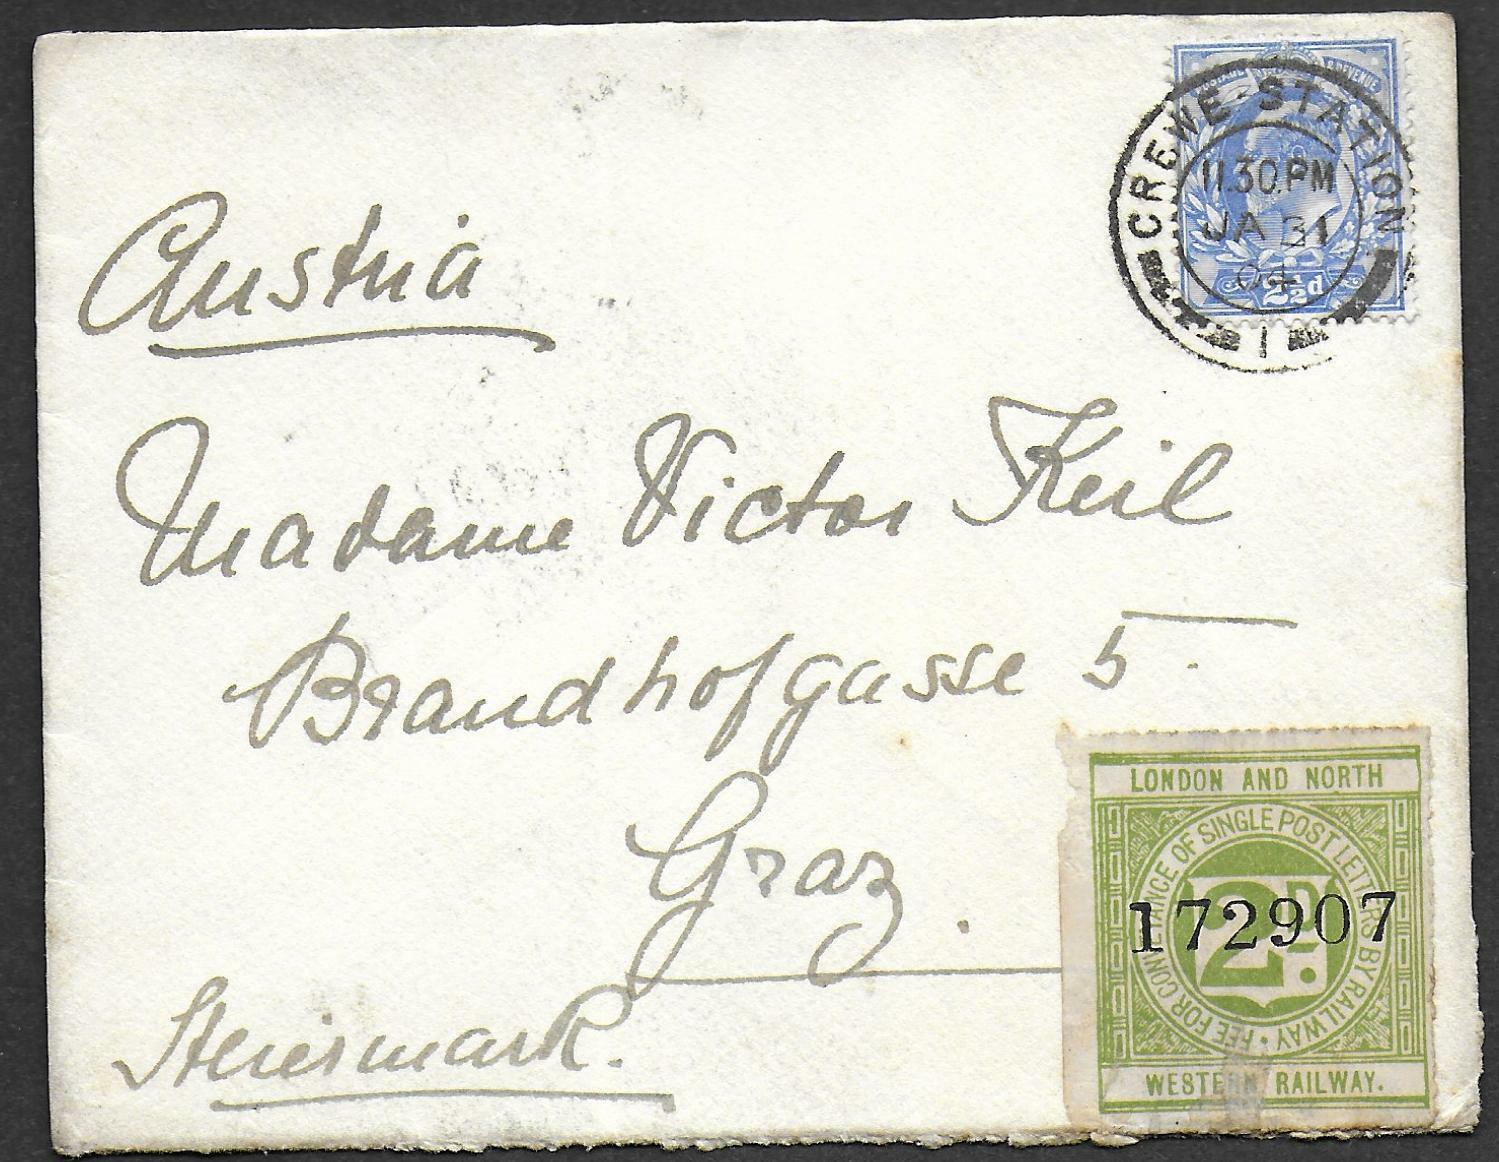 POSTAGE & REVENUE
CREWE·STATION
11.30.PM
JA 31
04
2½d
1
Austria
Madame Victor Keil
Brandhofgasse 5.
Graz.
Steiermark.
LONDON AND NORTH
FEE FOR CONVEYANCE OF SINGLE POST LETTERS BY RAILWAY ·
2D.
172907
WESTERN RAILWAY.